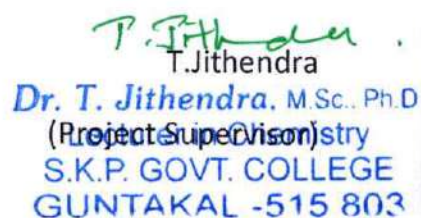 T. Jithendra.
T.Jithendra
Dr. T. Jithendra, M.Sc., Ph.D
(Project Supervisor)
Lecturer in Chemistry
S.K.P. GOVT. COLLEGE
GUNTAKAL -515 803